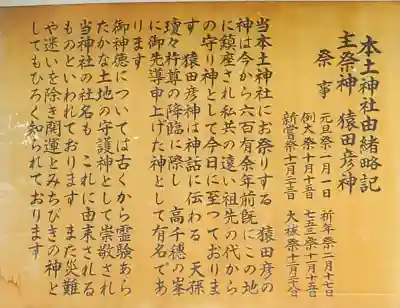 本土神社由緒略記
主祭神　猿田彦神
祭事
元旦祭一月一日　祈年祭二月十七日
例大祭十月十五日　七五三祭十一月十五日
新嘗祭十一月二十三日　大祓祭十二月二十日
当本土神社にお祭りする　猿田彦の
神は今から六百有余年前既にこの地
に鎮座され私共の遠い祖先の代から
の守り神として今日に至っておりま
す　猿田彦神は神話に伝わる　天孫
瓊々杵尊の降臨に際し　高千穂の峯
に御先導申上げた神として有名であ
ります
御神徳については古くから霊験あら
たかな土地の守護神として崇敬され
当神社の社名も　これに由来される
ものといわれております　また災難
や迷いを除き開運とみちびきの神と
してもひろく知られております